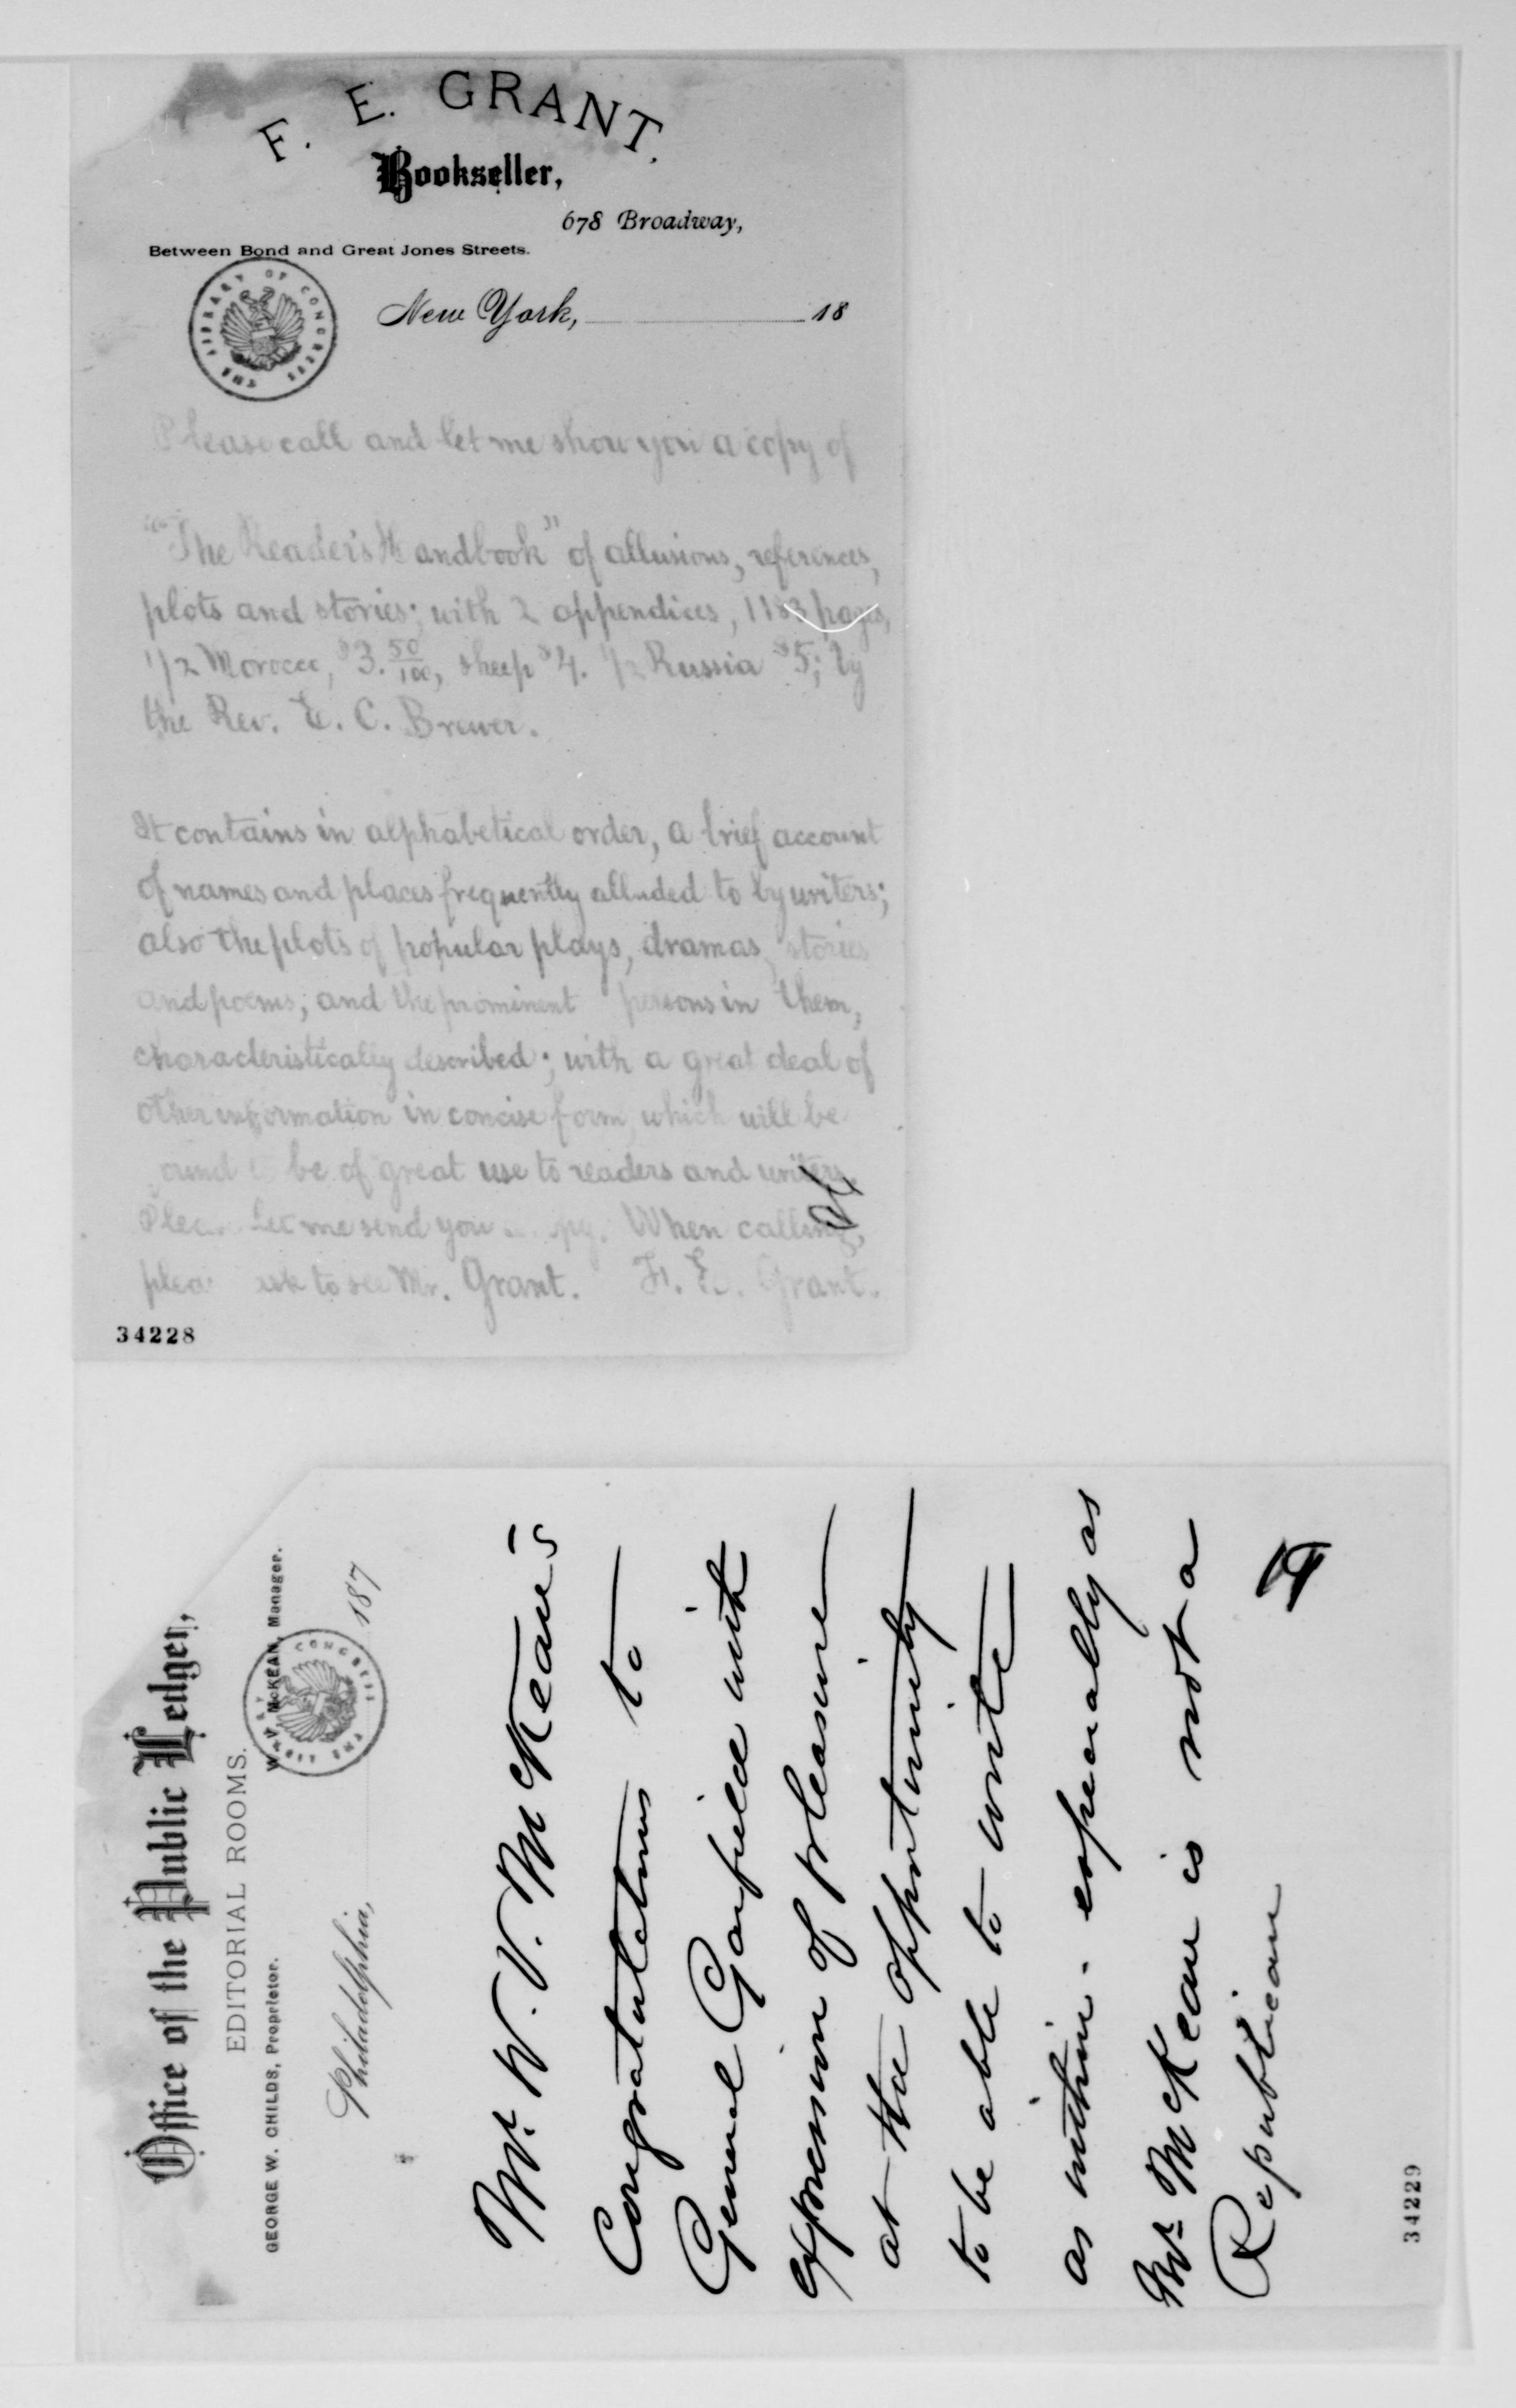 F. E. GRANT.
Bookseller,
678 Broadway,
Between Bond and Great Jones Streets.
THE LIBRARY OF CONGRESS
New York, 18
Please call and let me show you a copy of
"The Reader's Handbook" of allusions, references,
plots and stories; with 2 appendices, 1183 pages,
1/2 Morocco, $3.50/100, sheep $4. 1/2 Russia $5; by
the Rev. E. C. Brewer.
It contains in alphabetical order, a brief account
of names and places frequently alluded to by writers;
also the plots of popular plays, dramas, stories
and poems; and the prominent persons in them,
characteristically described; with a great deal of
other information in concise form, which will be
ound to be of great use to readers and writers.
Please let me send you a copy. When calling,
please ask to see Mr. Grant. F. E. Grant.
34228
Office of the Public Ledger,
EDITORIAL ROOMS.
GEORGE W. CHILDS, Proprietor. W. V. McKEAN, Manager.
THE LIBRARY OF CONGRESS
Philadelphia, 187
Mr. W. V. McKean's
Congratulations to
General Garfield with
expression of pleasure
at the opportunity
to be able to write
as within - especially as
Mr. McKean is not a
Republican
34229